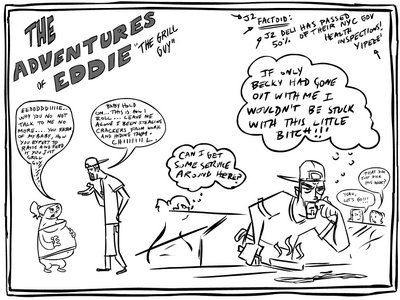 THE
ADVENTURES
OF EDDIE
"THE GRILL
GUY"
J2 FACTOID:
J2 DELI HAS PASSED
50% OF THEIR NYC GOV
HEALTH
INSPECTIONS!
YIPEEE!
EEDDDDDIIIIE..
WHY YOU NO NOT
TALK TO ME NO
MORE....
OF MY BABY, HOW
YOU EXPECT TO
RAISE AND FEED
IT YOU JUST
GRILL
GUY
BABY HOLD
ON...THIS IS HOW I
ROLL... LEAVE ME
ALONE I BEEN STEALING
CRACKERS FROM WORK
AND HIDING THEM.
CHIIIIILL
CAN I GET
SOME SERVICE
AROUND HERE?
IF ONLY
BECKY HAD GONE
OUT WITH ME I
WOULDN'T BE STUCK
WITH THIS LITTLE
BITC#!!!
YEAH,
LET'S GO!!!
THAT GUY
JUST PICK
HIS NOSE?
E